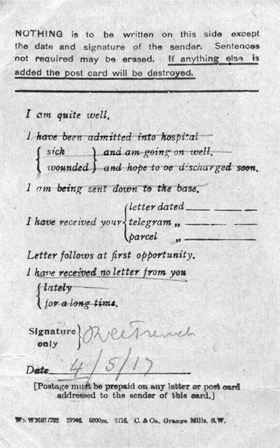 NOTHING is to be written on this side except
the date and signature of the sender. Sentences
not required may be erased. If anything else is
added the post card will be destroyed.
I am quite well.
I have been admitted into hospital
{ sick } and am going on well.
{ wounded } and hope to be discharged soon.
I am being sent down to the base.
{ letter dated
I have received your { telegram „
{ parcel „
Letter follows at first opportunity.
I have received no letter from you
{ lately
{ for a long time.
Signature
only
Date 4/5/17
[Postage must be prepaid on any letter or post card
addressed to the sender of this card.]
C. & Co., Grange Mills, S.W.